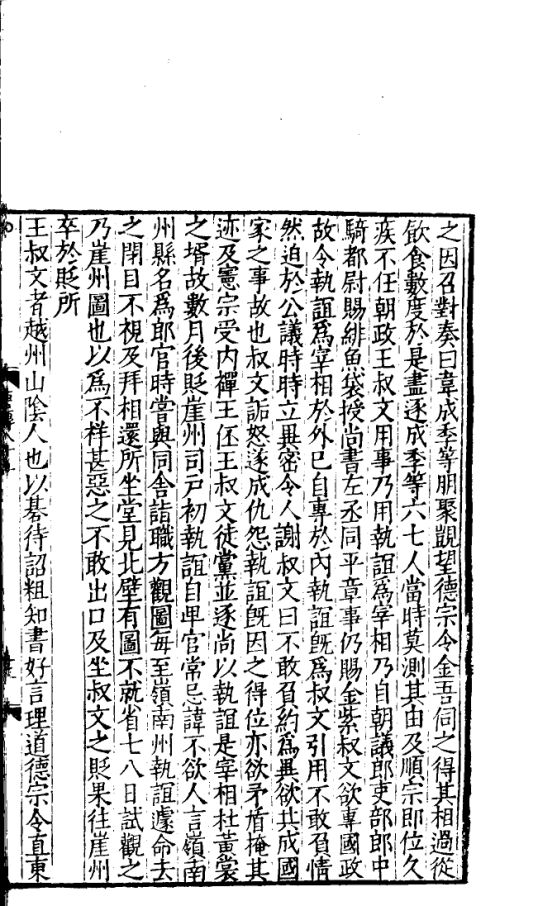 之因召對奏曰韋成季等朋聚覬望德宗令金吾伺之得其相過從
飲食數度於是盡逐成季等六七人當時莫測其由及順宗即位久
疾不任朝政王叔文用事乃用執誼爲宰相乃自朝議郎吏部郎中
騎都尉賜緋魚袋授尚書左丞同平章事仍賜金紫叔文欲專國政
故令執誼爲宰相於外已自專於內執誼旣爲叔文引用不敢負情
然迫於公議時時立異密令人謝叔文曰不敢負約爲異欲共成國
家之事故也叔文詬怒遂成仇怨執誼旣因之得位亦欲矛盾掩其
迹及憲宗受內禪王伾王叔文徒黨並逐尚以執誼是宰相杜黃裳
之壻故數月後貶崖州司戸初執誼自卑官常忌諱不欲人言嶺南
州縣名爲郎官時嘗與同舍詣職方觀圖每至嶺南州執誼遽命去
之閉目不視及拜相還所坐堂見北壁有圖不就省七八日試觀之
乃崖州圖也以爲不祥甚惡之不敢出口及坐叔文之貶果往崖州
卒於貶所
王叔文者越州山陰人也以棊待詔粗知書好言理道德宗令直東